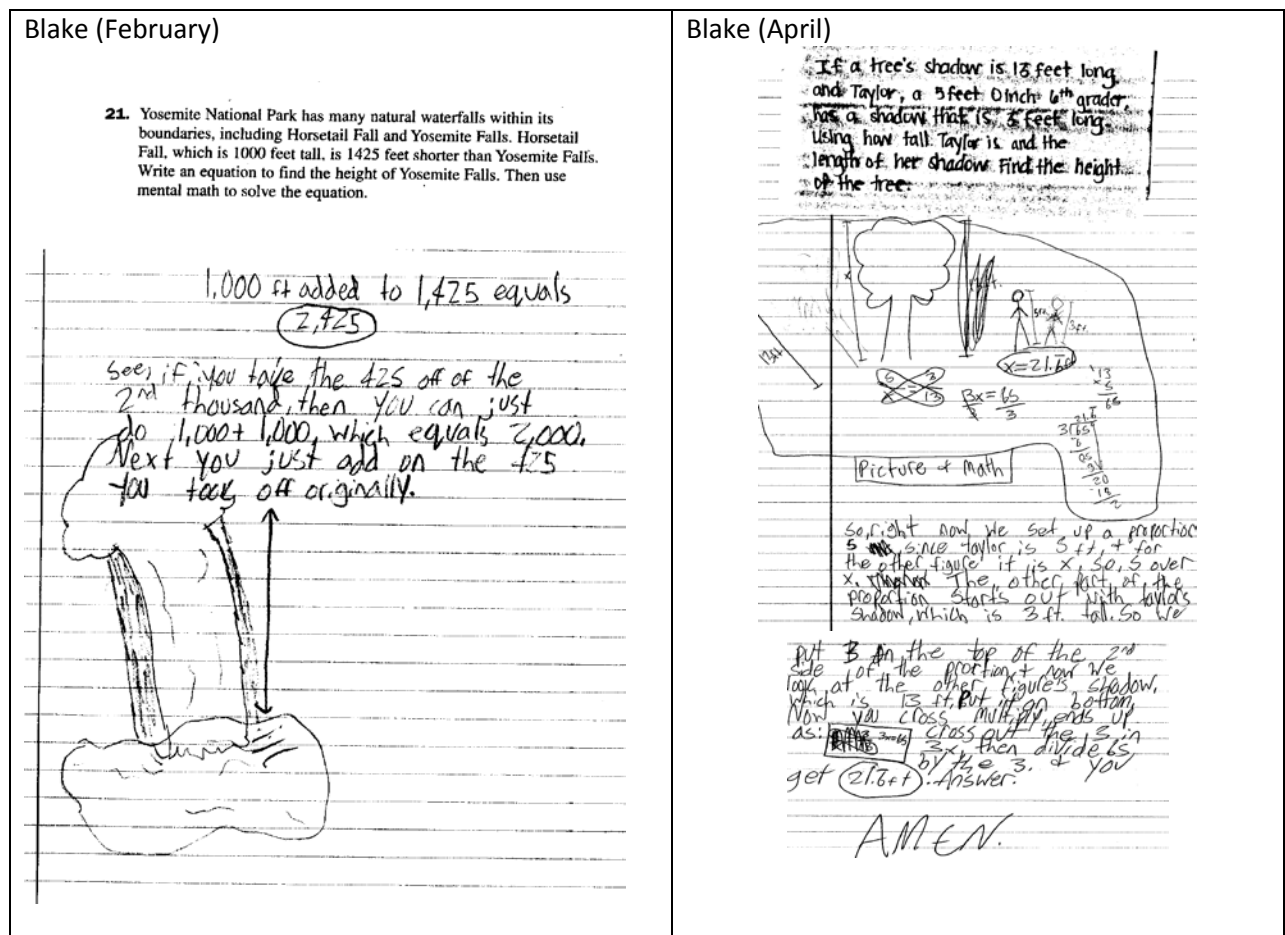 Blake (February)
21. Yosemite National Park has many natural waterfalls within its
boundaries, including Horsetail Fall and Yosemite Falls. Horsetail
Fall, which is 1000 feet tall, is 1425 feet shorter than Yosemite Falls.
Write an equation to find the height of Yosemite Falls. Then use
mental math to solve the equation.
1,000 ft added to 1,425 equals
2,425
See, if, you take the 425 off of the
2nd thousand, then you can just
do 1,000 + 1,000, which equals 2,000.
Next you just add on the 425
you took off originally.
Blake (April)
If a tree's shadow is 13 feet long
and Taylor, a 5 feet 0 inch 6th grader,
has a shadow that is 3 feet long
using how tall Taylor is and the
length of her shadow Find the height
of the tree.
x
5ft.
3ft.
13ft
x=21.6ft
5 = 3
x 13
3x = 65
3 3
13
x 5
65
21.6
3 65
6
05
3
20
18
2
Picture + Math
So, right now we set up a proportion
5, since taylor is 5 ft, + for
the other figure it is x, so, 5 over
x. The other part of the
proportion starts out with taylor's
shadow, which is 3 ft. tall. So we
put 3 on the top of the 2nd
side of the proortion, + now we
look at the other figure's shadow,
which is 13 ft, Put it on bottom,
Now you cross multiply, ends up
as: 3x=65 cross out the 3 in
3x, then divide 65
by the 3. & you
get 21.6ft. Answer.
AMEN.